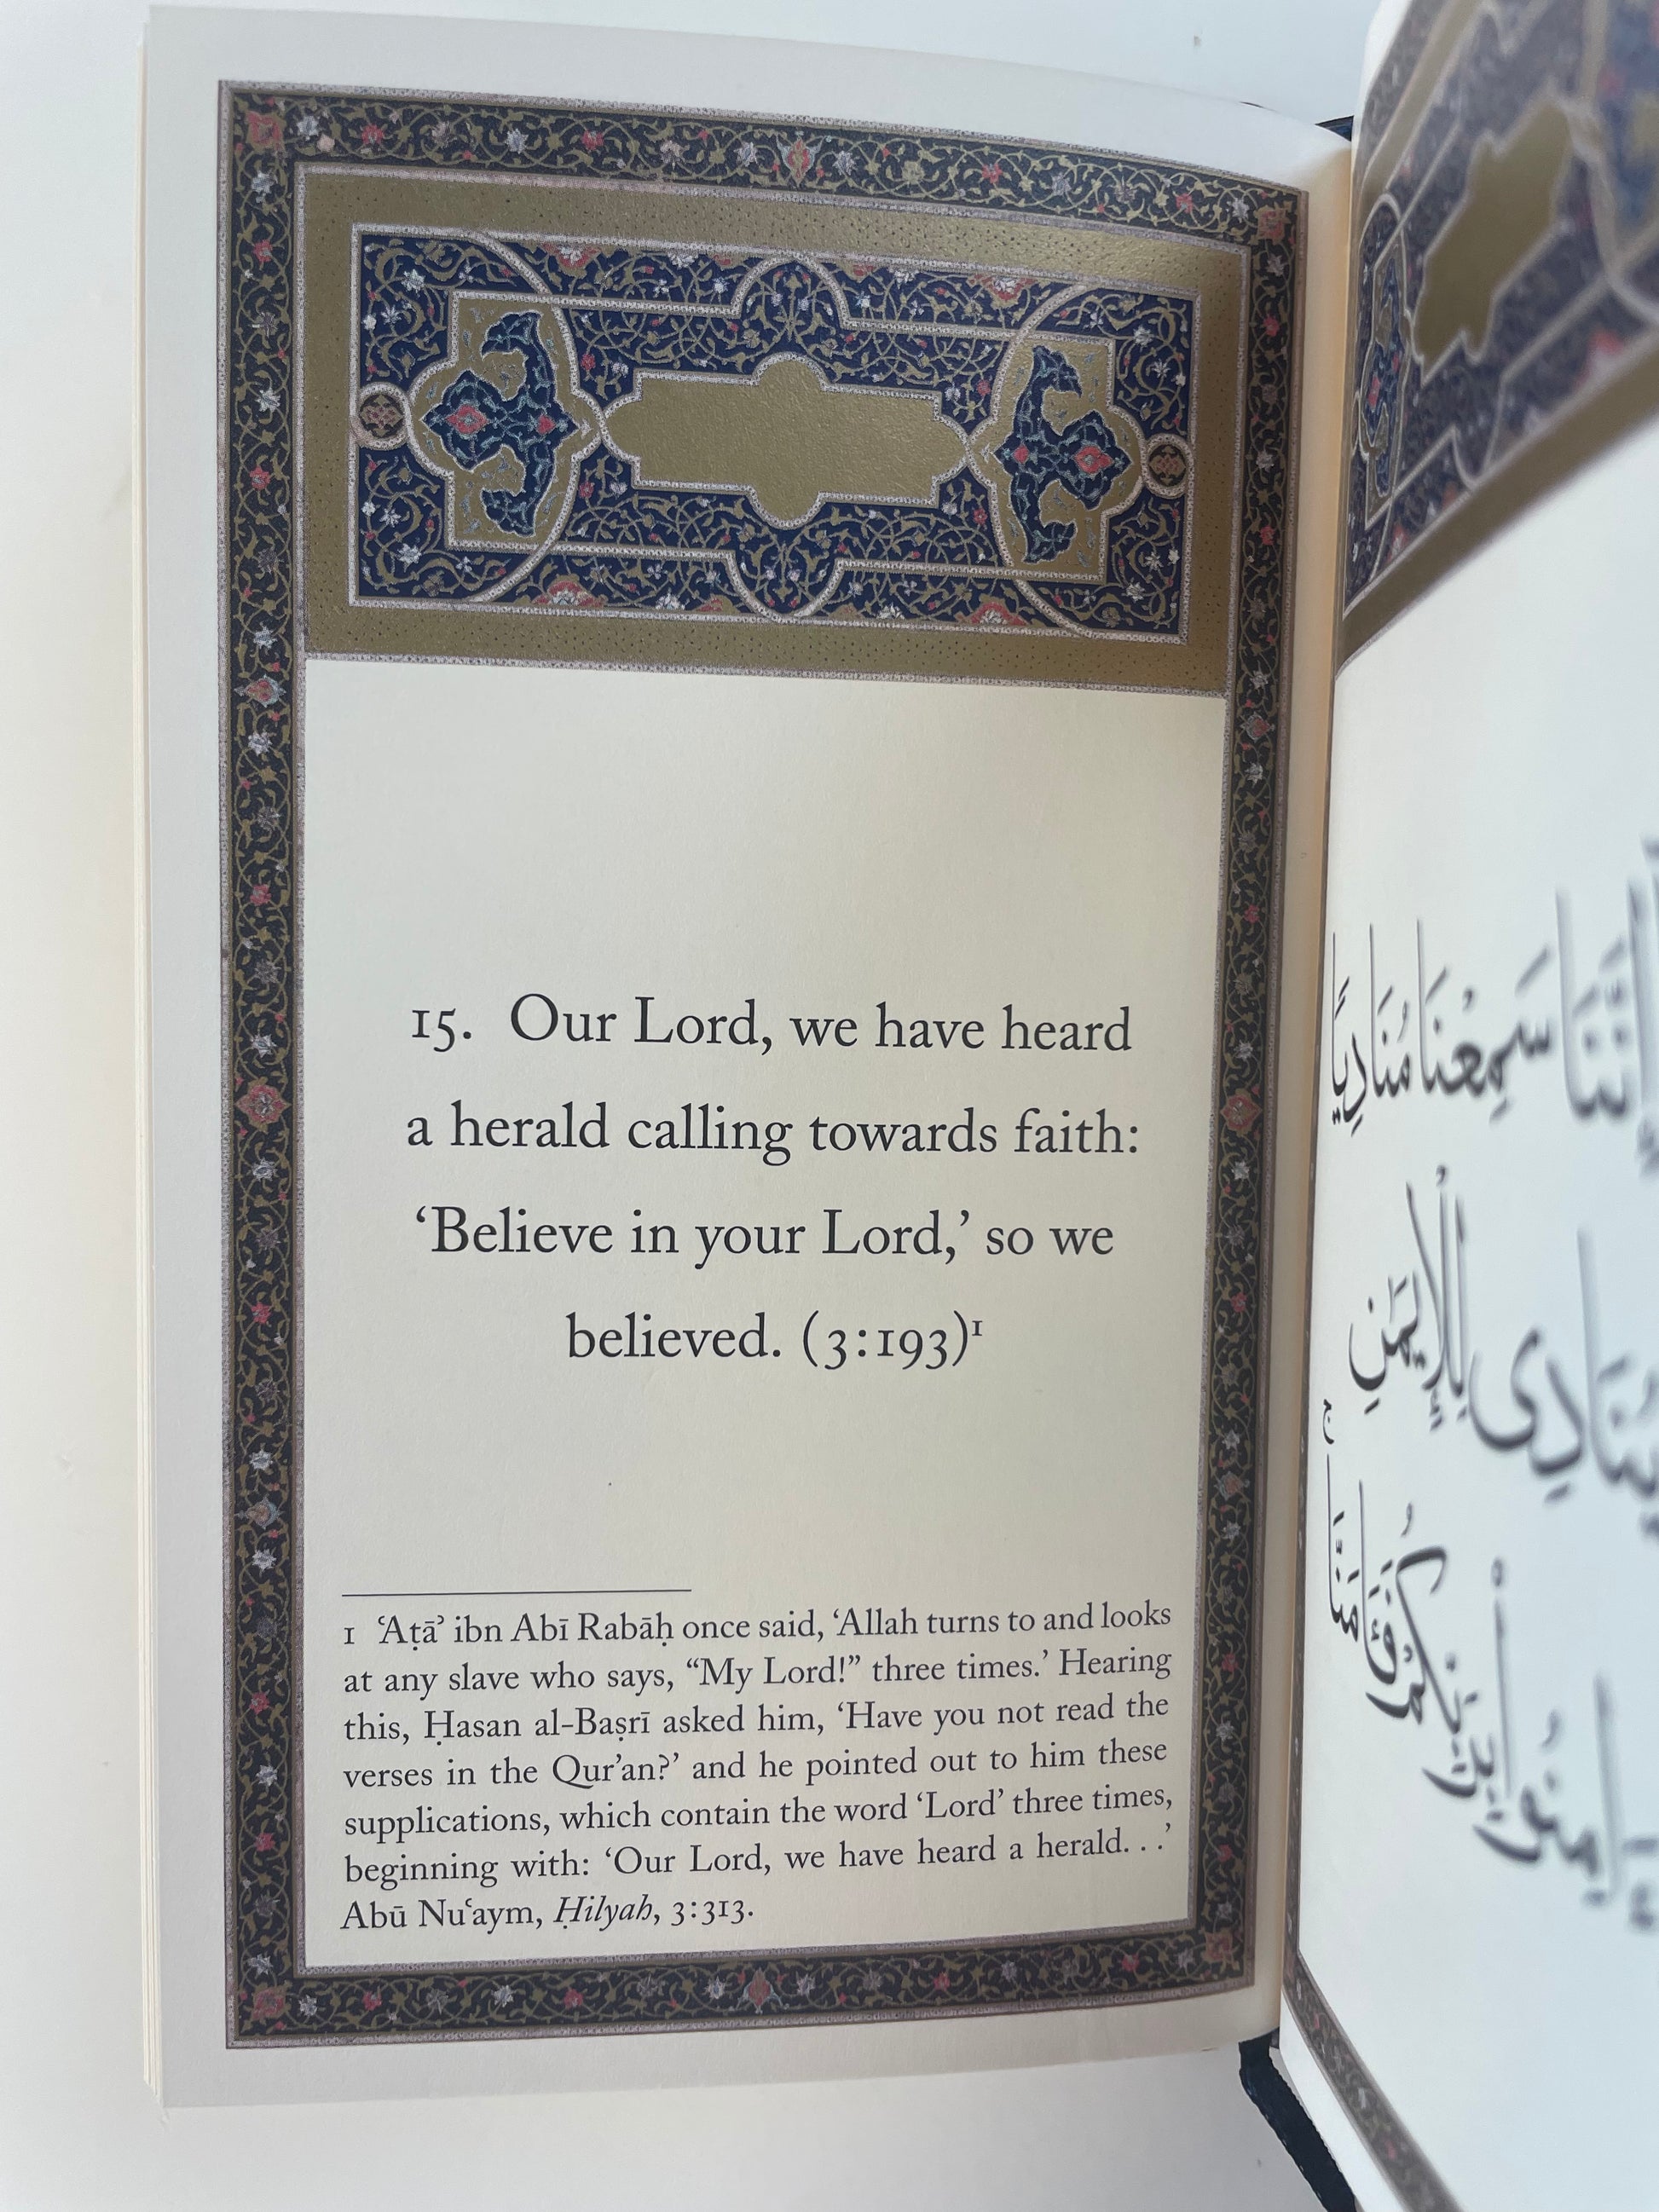 15. Our Lord, we have heard
a herald calling towards faith:
‘Believe in your Lord,’ so we
believed. (3:193)¹
1 ʿAṭāʾ ibn Abī Rabāḥ once said, ‘Allah turns to and looks
at any slave who says, “My Lord!” three times.’ Hearing
this, Ḥasan al-Baṣrī asked him, ‘Have you not read the
verses in the Qur’an?’ and he pointed out to him these
supplications, which contain the word ‘Lord’ three times,
beginning with: ‘Our Lord, we have heard a herald. . .’
Abū Nuʿaym, Ḥilyah, 3:313.
إِنَّنَا سَمِعْنَا مُنَادِيًا
يُنَادِى لِلْإِيمَٰنِ
أَنْ ءَامِنُوا۟ بِرَبِّكُمْ فَـَٔامَنَّا ۚ